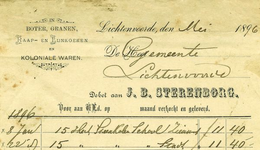 IN
BOTER, GRANEN,
RAAP- EN LIJNKOEKEN
EN
KOLONIALE WAREN.
Lichtenvoorde, den Mei 1896
De Gemeente
Lichtenvoorde
Debet aan J. B. STERENBORG,
Voor aan UEd. op maand verkocht en geleverd.
1896
8 Jan 15 School f 11 40
22 15 11 40